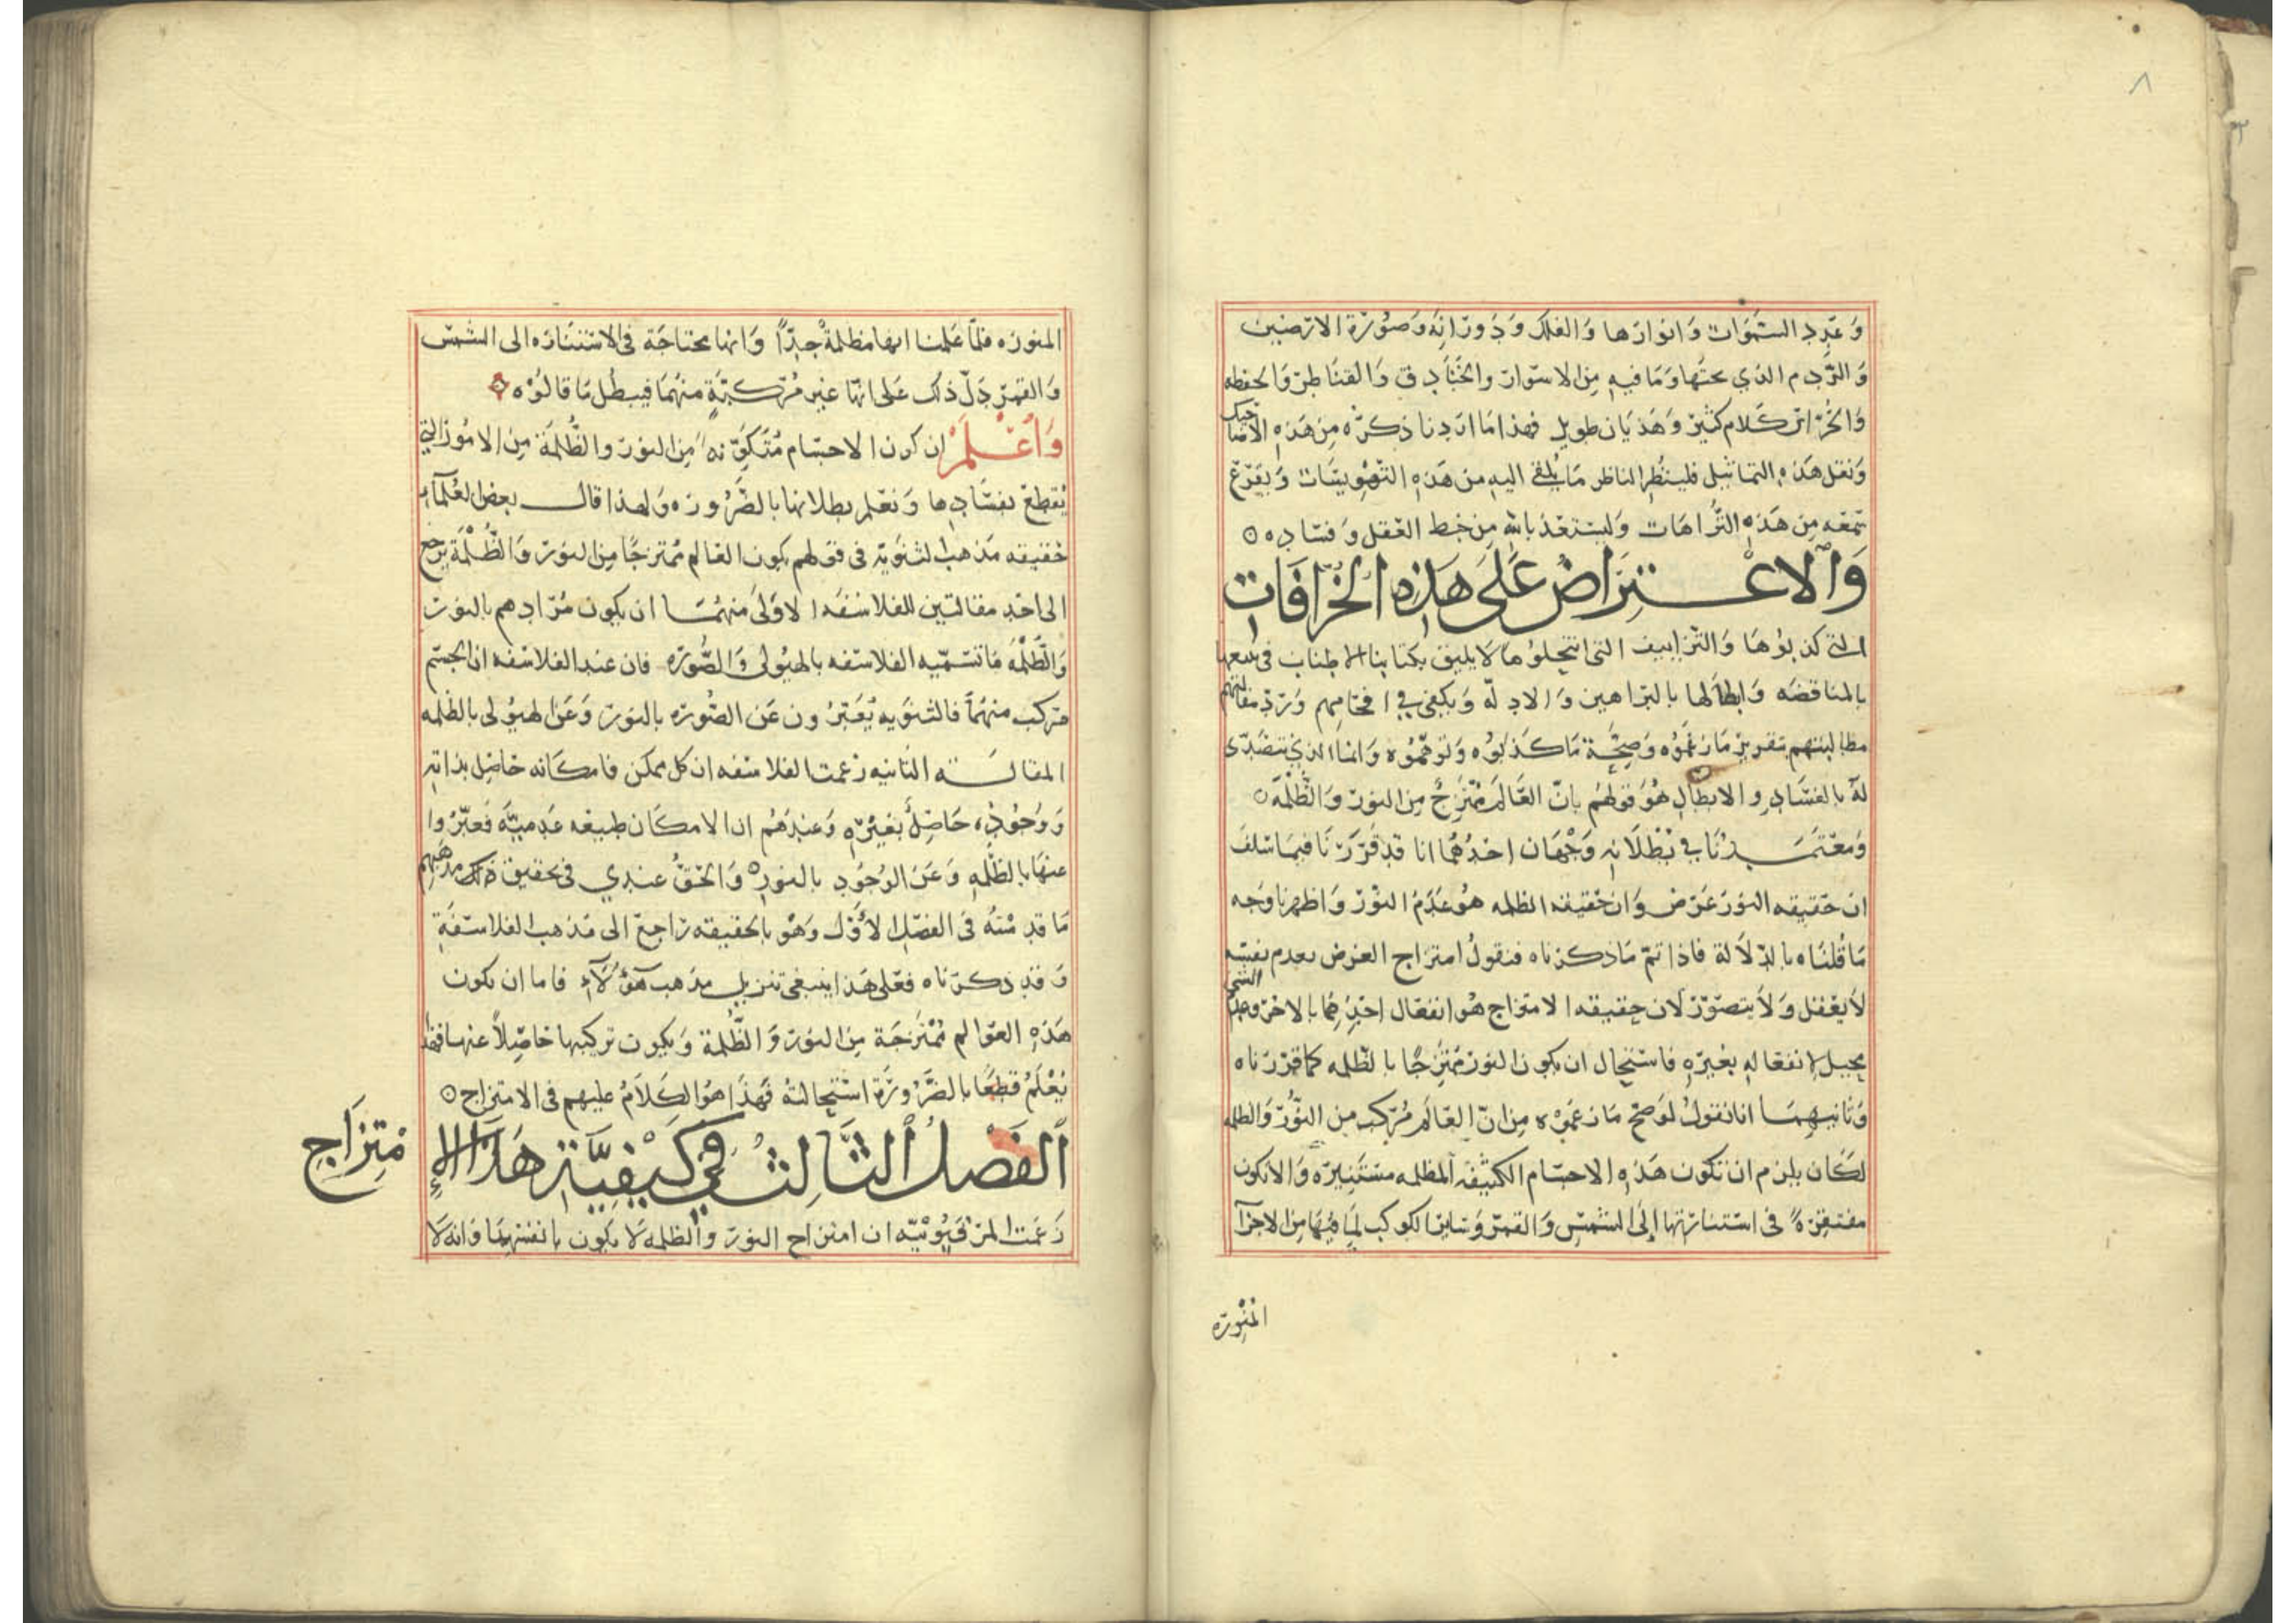 ٨
وعدد السموات وانوارها والفلك ودورانه وصورة الارضين
والردم الذي تحتها وما فيه من الاسوار والخنادق والقناطر والحفظه
والخزائن كلام كثير وهذيان طويل فهذا ما اردنا ذكره من هذه الاضاحيك
ونقل هذه التماثيل فلينظر الناظر ما يلقى اليه من هذه التهويسات ويقرع
سمعه من هذه الترهات وليستعذ بالله من خبط العقل وفساده
والاعتراض على هذه الخرافات
التي كذبوها والتزاييف التي انتحلوها لا يليق بكتابنا الاطناب في تتبعها
بالمناقضه وابطالها بالبراهين والادلة ويكفي في افحامهم ورد مقالتهم
مطالبتهم بتقرير ما زعموه وصحة ما كذبوه وتوهموه وانما الذي نتصدى
له بالفساد والابطال هو قولهم بان العالم ممتزج من النور والظلمة
ومعتمدنا في بطلانه وجهان احدهما انا قد قررنا فيما سلف
ان حقيقه النور عرض وان حقيقه الظلمه هو عدم النور واظهرنا وجه
ما قلناه بالدلالة فاذا تم ما ذكرناه فنقول امتزاج العرض بعدم نفسه
لا يعقل ولا يتصور لان حقيقه الامتزاج هو انفعال احدهما بالاخر وعدم الشي
يحيل انفعاله بغيره فاستحال ان يكون النور ممتزجا بالظلمه كما قررناه
وثانيهما انا نقول لو صح ما زعموه من ان العالم مركب من النور والظلمه
لكان يلزم ان تكون هذه الاجسام الكثيفه المظلمه مستنيره والا تكون
مفتقرة في استنارتها الى الشمس والقمر وسائر الكوكب لما فيها من الاجزآ
المنوره
المنوره فلما علمنا انها مظلمة جدا وانها محتاجة في الاستناره الى الشمس
والقمر دل ذلك على انها غير مركبة منهما فيبطل ما قالوه
واعلم ان كون الاجسام متكونه من النور والظلمة من الامور التي
نقطع بفسادها ونعلم بطلانها بالضروره ولهذا قال بعض العلمآء
حقيقه مذهب الثنويه في قولهم بكون العالم ممتزجا من النور والظلمة يرجع
الى احد مقالتين للفلاسفه الاولى منهما ان يكون مرادهم بالنور
والظلمه ما تسميه الفلاسفه بالهيولى والصوره فان عند الفلاسفه ان الجسم
مركب منهما فالثنويه يعبرون عن الصوره بالنور وعن الهيولى بالظلمه
المقالته الثانيه زعمت الفلاسفه ان كل ممكن فامكانه حاصل بذاته
ووجوده حاصل بغيره وعندهم ان الامكان طبيعه عدمية فعبروا
عنها بالظلمه وعن الوجود بالنور والحق عندي في تحقيق ذلك مذهبهم
ما قدمته في الفصل الاول وهو بالحقيقه راجع الى مذهب الفلاسفة
وقد ذكرناه فعلى هذا ينبغي تنزيل مذهب هؤلآء فاما ان تكون
هذه العوالم ممتزجة من النور والظلمة ويكون تركيبها حاصلا عنهما فهذا
نعلم قطعا بالضرورة استحالته فهذا هو الكلام عليهم في الامتزاج
الفصل الثالث في كيفية هذا الامتزاج
زعمت المرقيونيه ان امتزاج النور والظلمه لا يكون بانفسهما وانه لا